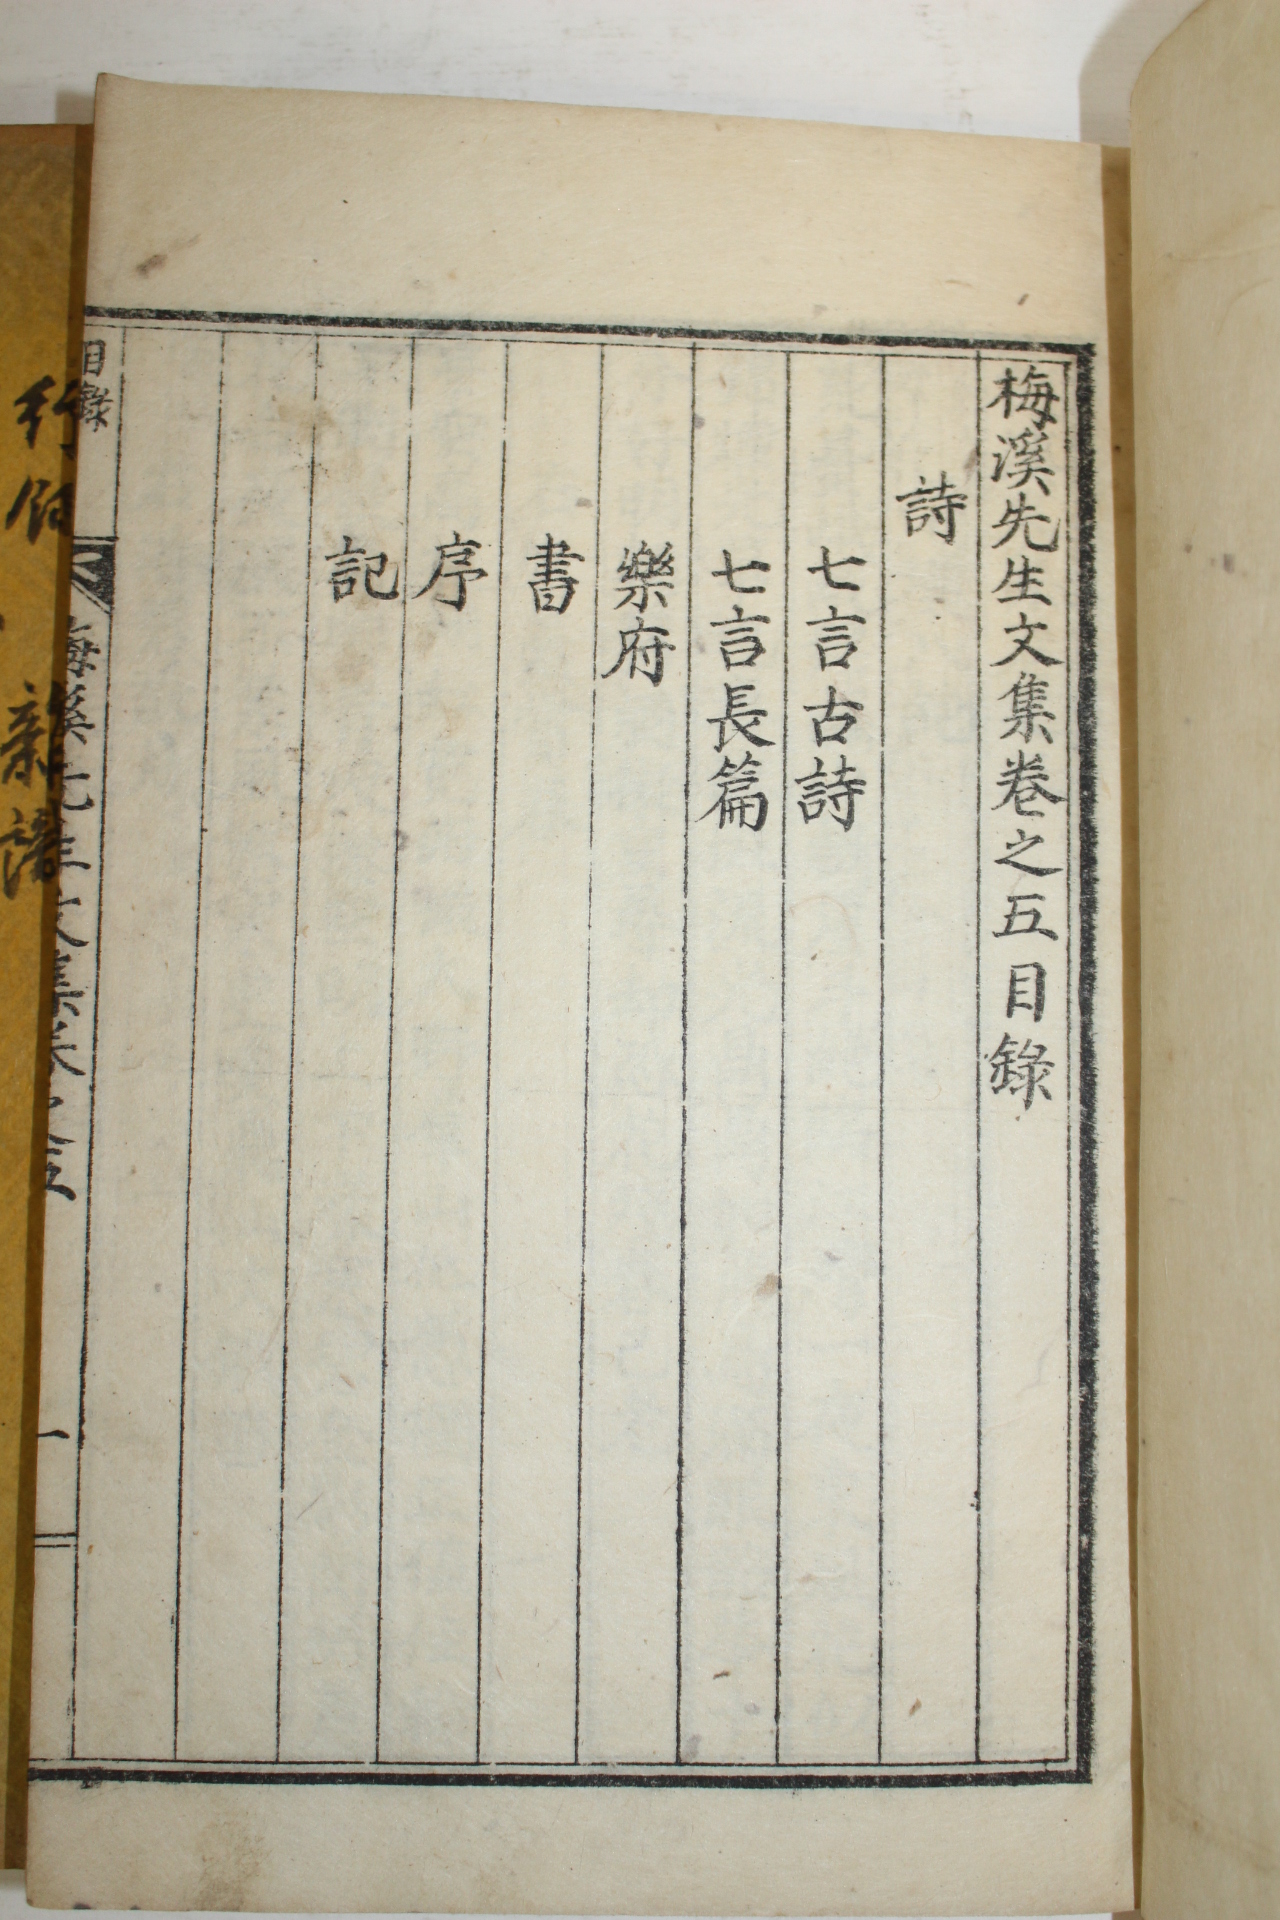 梅溪先生文集卷之五目錄
詩
七言古詩
七言長篇
樂府
書
序
記
目錄
梅溪先生文集卷之五
一